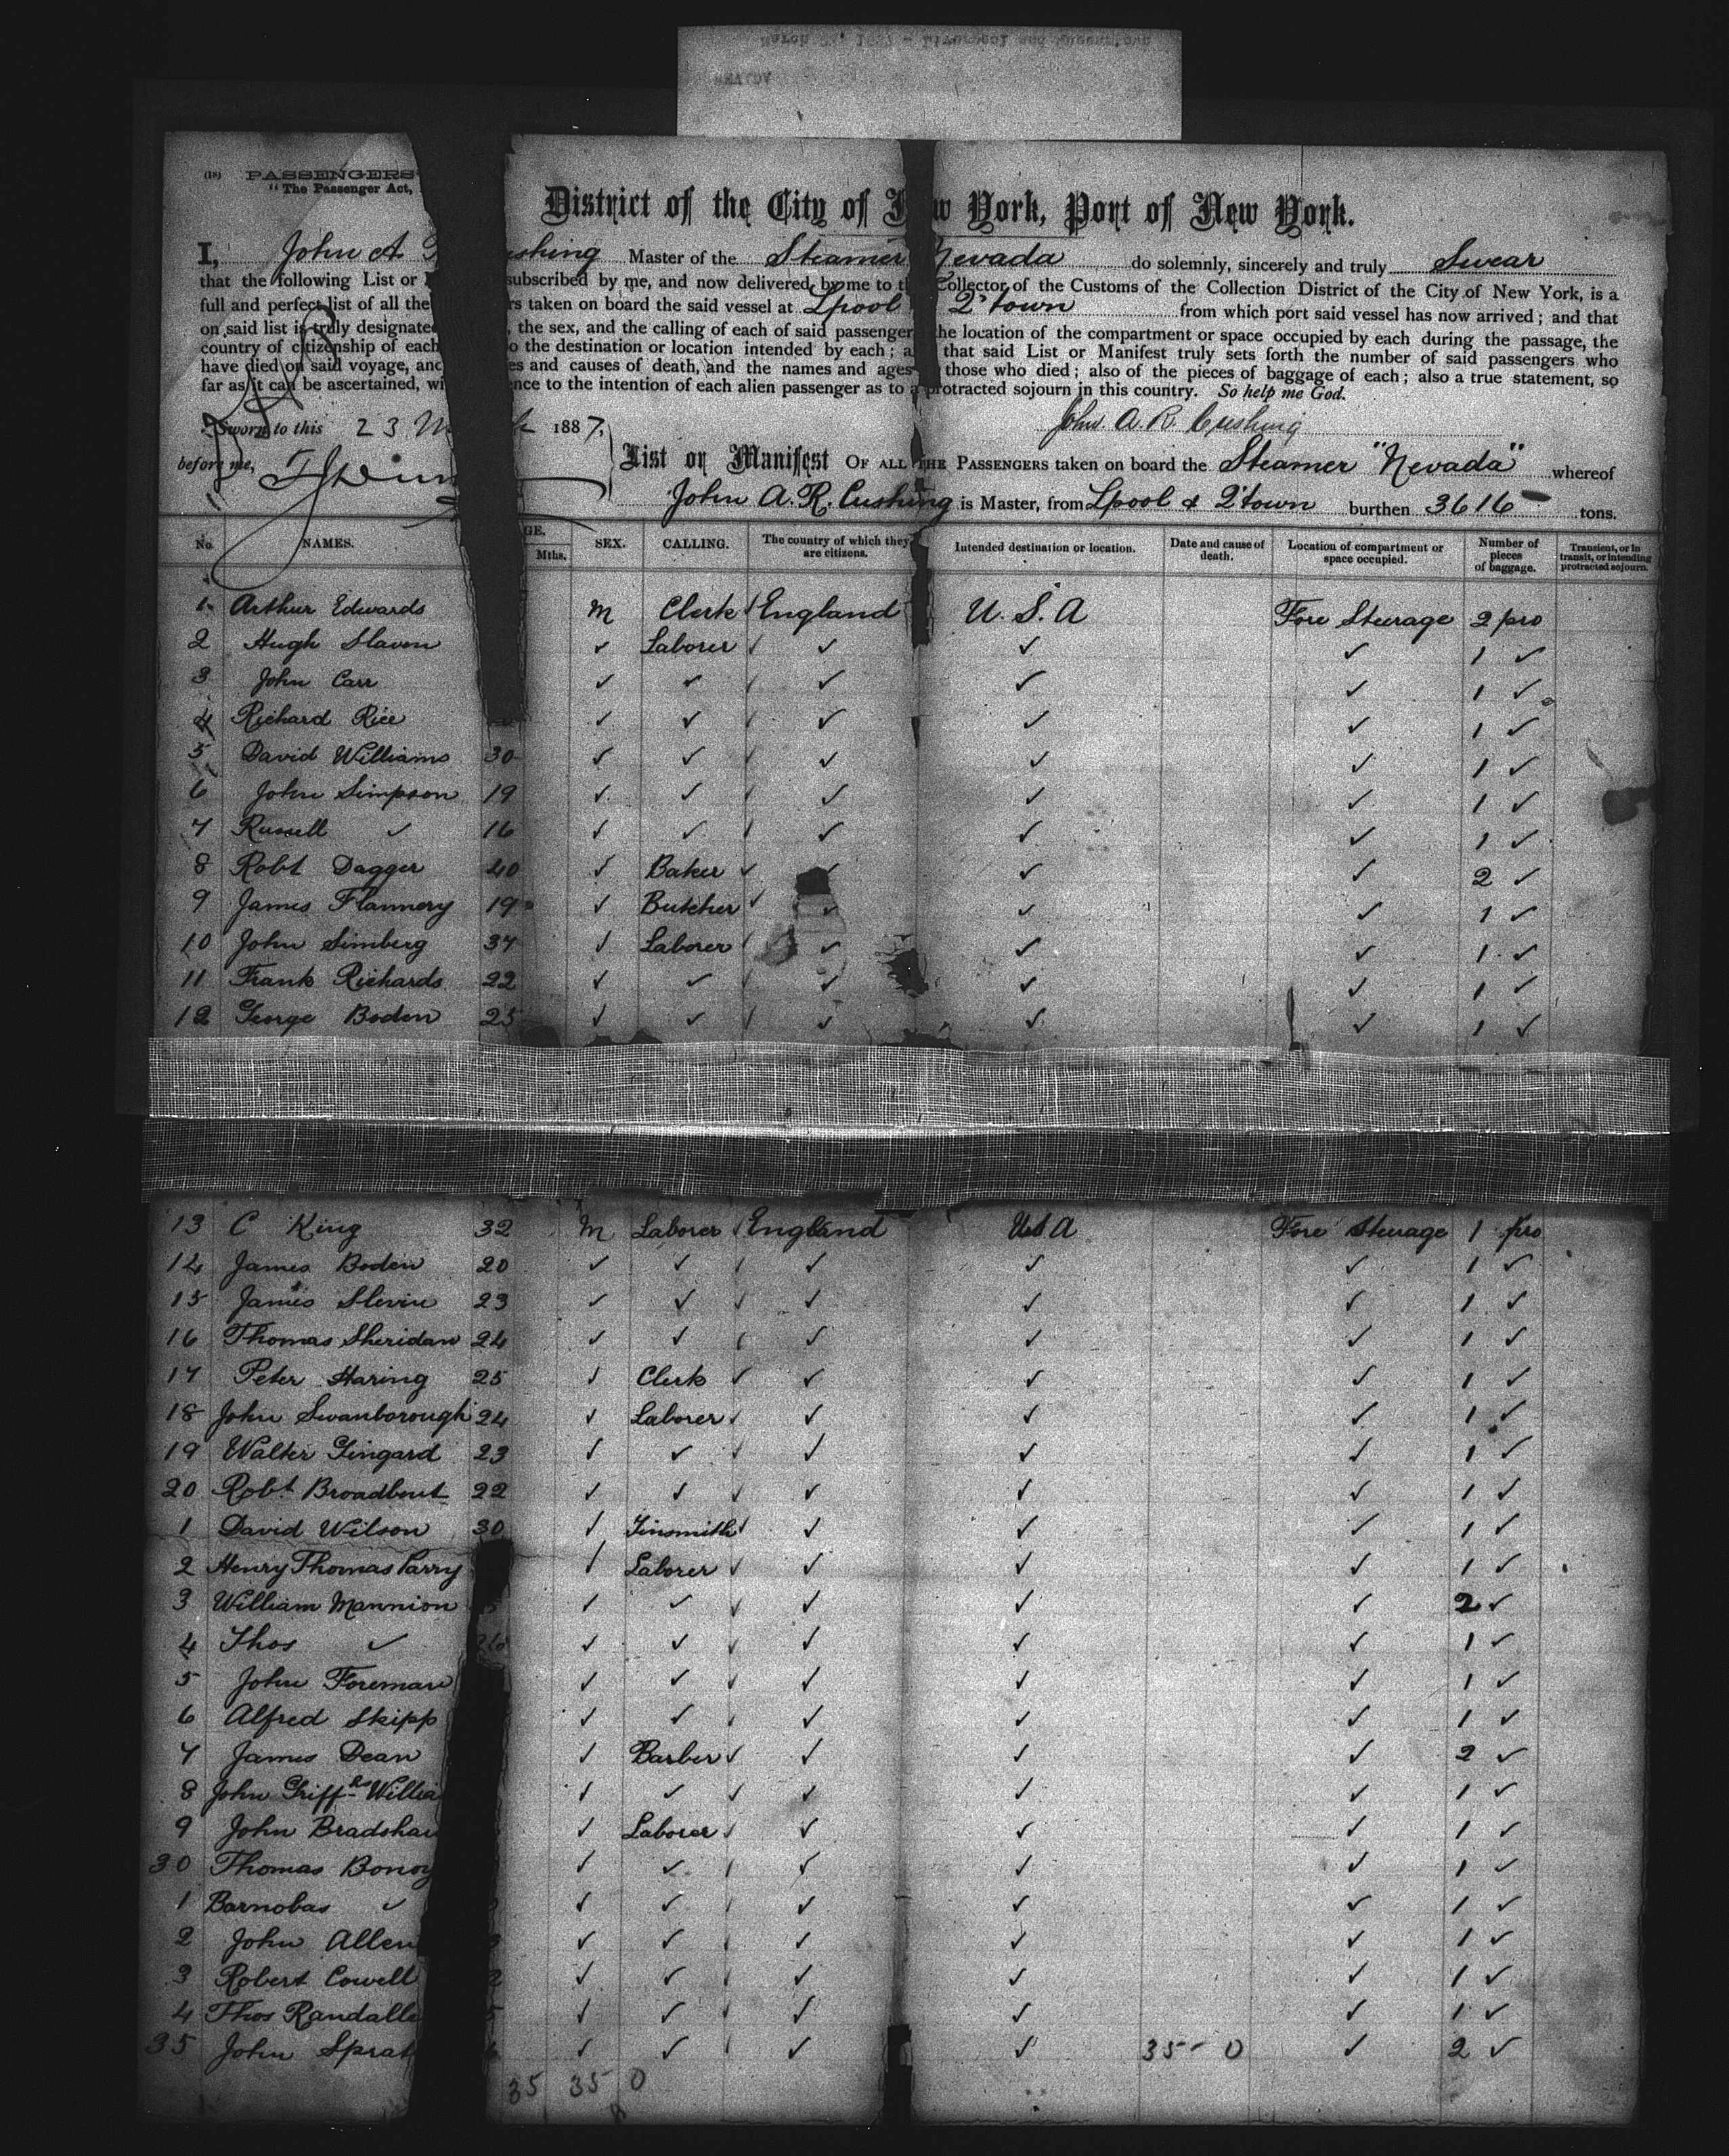 (18) PASSENGERS
"The Passenger Act,
District of the City of New York, Port of New York.
I, John A. Cushing Master of the Steamer Nevada do solemnly, sincerely and truly Swear
that the following List or subscribed by me, and now delivered by me to the Collector of the Customs of the Collection District of the City of New York, is a
full and perfect list of all the taken on board the said vessel at Lpool Q'town from which port said vessel has now arrived; and that
on said list is truly designated , the sex, and the calling of each of said passenger the location of the compartment or space occupied by each during the passage, the
country of citizenship of each the destination or location intended by each; that said List or Manifest truly sets forth the number of said passengers who
have died on said voyage, and causes of death, and the names and ages those who died; also of the pieces of baggage of each; also a true statement, so
far as it can be ascertained, to the intention of each alien passenger as to a protracted sojourn in this country. So help me God.
Sworn to this 23 1887,
John. A. R. Cushing
before me,
List or Manifest OF ALL THE PASSENGERS taken on board the Steamer "Nevada" whereof
John A. R. Cushing is Master, from Lpool & Q'town burthen 3616 tons.
No. NAMES. Mths. SEX. CALLING. The country of which they are citizens. Intended destination or location. Date and cause of death. Location of compartment or space occupied. Number of pieces of baggage. Transient, or in transit, or intending protracted sojourn.
1 Arthur Edwards M Clerk England U.S.A Fore Steerage 2 pro
2 Hugh Slaven ✓ Laborer ✓ ✓ ✓ 1 ✓
3 John Carr ✓ ✓ ✓ ✓ ✓ 1 ✓
4 Richard Rice ✓ ✓ ✓ ✓ ✓ 1 ✓
5 David Williams 30 ✓ ✓ ✓ ✓ ✓ 1 ✓
6 John Simpson 19 ✓ ✓ ✓ ✓ ✓ 1 ✓
7 Russell ✓ 16 ✓ ✓ ✓ ✓ ✓ 1 ✓
8 Robt Dagger 40 ✓ Baker ✓ ✓ ✓ 2 ✓
9 James Flannery 19 ✓ Butcher ✓ ✓ ✓ 1 ✓
10 John Simberg 37 ✓ Laborer ✓ ✓ ✓ 1 ✓
11 Frank Richards 22 ✓ ✓ ✓ ✓ ✓ 1 ✓
12 George Boden 25 ✓ ✓ ✓ ✓ ✓ 1 ✓
13 C King 32 M Laborer England U.S.A Fore Steerage 1 pro
14 James Boden 20 ✓ ✓ ✓ ✓ ✓ 1 ✓
15 James Slevin 23 ✓ ✓ ✓ ✓ ✓ 1 ✓
16 Thomas Sheridan 24 ✓ ✓ ✓ ✓ ✓ 1 ✓
17 Peter Haring 25 ✓ Clerk ✓ ✓ ✓ 1 ✓
18 John Swanborough 24 ✓ Laborer ✓ ✓ ✓ 1 ✓
19 Walter Gingard 23 ✓ ✓ ✓ ✓ ✓ 1 ✓
20 Robt Broadbent 22 ✓ ✓ ✓ ✓ ✓ 1 ✓
1 David Wilson 30 ✓ Tinsmith ✓ ✓ ✓ 1 ✓
2 Henry Thomas Parry ✓ Laborer ✓ ✓ ✓ 1 ✓
3 William Mannion ✓ ✓ ✓ ✓ ✓ 2 ✓
4 Thos ✓ ✓ ✓ ✓ ✓ ✓ 1 ✓
5 John Foreman ✓ ✓ ✓ ✓ ✓ 1 ✓
6 Alfred Skipp ✓ ✓ ✓ ✓ ✓ 1 ✓
7 James Dean ✓ Barber ✓ ✓ ✓ 2 ✓
8 John Griffhs Willia ✓ ✓ ✓ ✓ ✓ 1 ✓
9 John Bradshaw ✓ Laborer ✓ ✓ ✓ 1 ✓
30 Thomas Bonoy ✓ ✓ ✓ ✓ ✓ 1 ✓
1 Barnobas ✓ ✓ ✓ ✓ ✓ ✓ 1 ✓
2 John Allen ✓ ✓ ✓ ✓ ✓ 1 ✓
3 Robert Cowell 2 ✓ ✓ ✓ ✓ ✓ 1 ✓
4 Thos Randalle 5 ✓ ✓ ✓ ✓ ✓ 1 ✓
35 John Sprat ✓ ✓ ✓ ✓ 35 - 0 ✓ 2 ✓
35 35 0